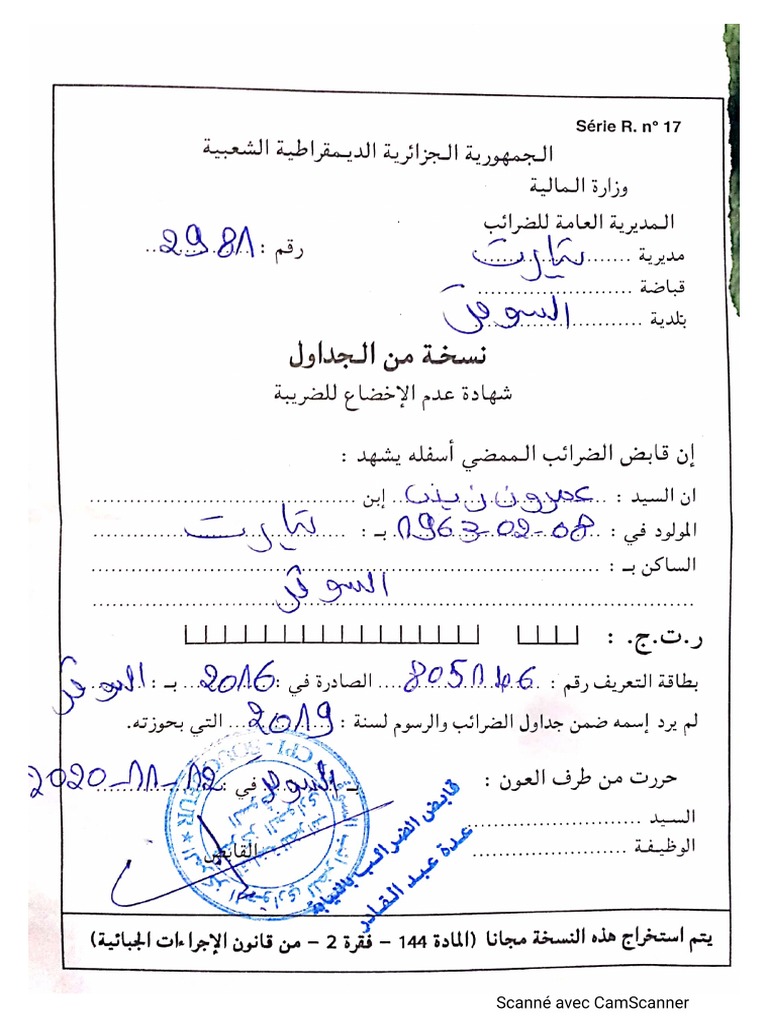 Série R. n° 17
الجمهورية الجزائرية الديمقراطية الشعبية
وزارة المالية
المديرية العامة للضرائب
مديرية تيارت رقم : 2981
قباضة
بلدية السوقر
نسخة من الجداول
شهادة عدم الإخضاع للضريبة
إن قابض الضرائب الممضي أسفله يشهد :
ان السيد : عمرون زينب إبن
المولود في : 08-02-1963 بـ : تيارت
الساكن بـ :
السوقر
ر.ت.ج. :
بطاقة التعريف رقم : 805146 الصادرة في : 2016 بـ : السوقر
لم يرد إسمه ضمن جداول الضرائب والرسوم لسنة : 2019 التي بحوزته.
حررت من طرف العون : بـ السوقر في : 12-11-2020
السيد
الوظيفة
القابض
قابض الضرائب بالنيابة
عدة عبد القادر
يتم استخراج هذه النسخة مجانا (المادة 144 – فقرة 2 – من قانون الإجراءات الجبائية)
Scanné avec CamScanner